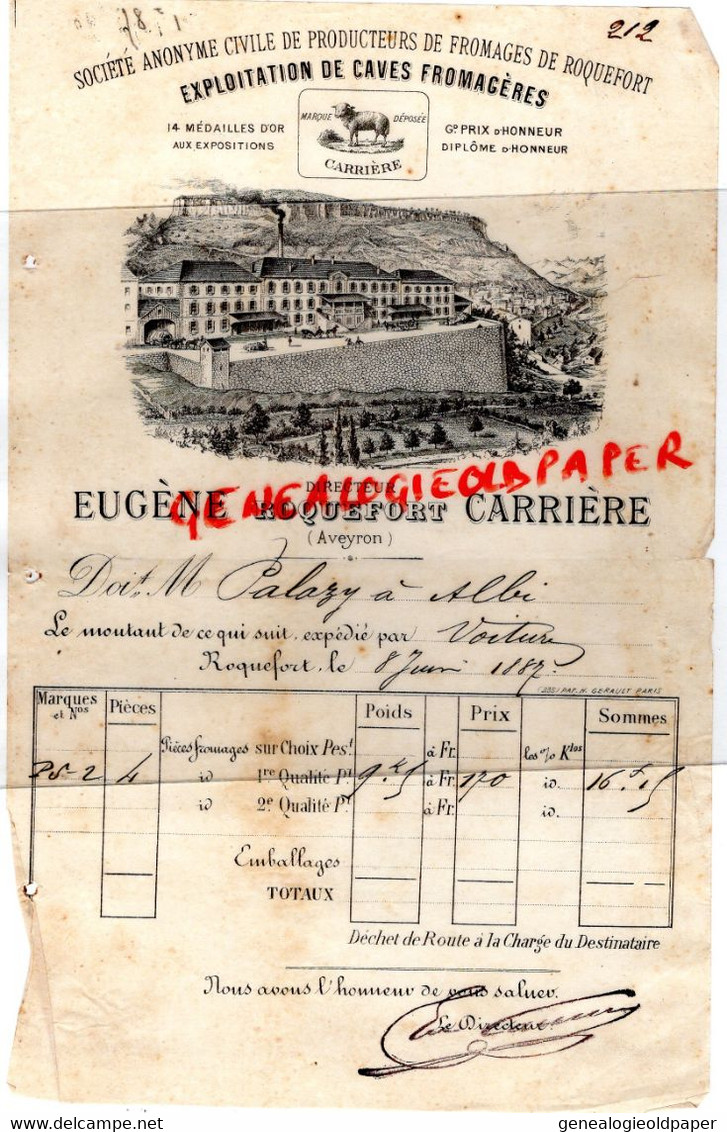 212
SOCIÉTÉ ANONYME CIVILE DE PRODUCTEURS DE FROMAGES DE ROQUEFORT
EXPLOITATION DE CAVES FROMAGÈRES
14 MÉDAILLES D'OR
AUX EXPOSITIONS
MARQUE DÉPOSÉE
CARRIÈRE
Gᴰ PRIX D'HONNEUR
DIPLÔME D'HONNEUR
GENEALOGIEOLDPAPER
DIRECTEUR
EUGÈNE ROQUEFORT CARRIÈRE
(Aveyron)
Doit M Palazy à Albi
Le montant de ce qui suit, expédié par Voiture
Roquefort, le 8 Juin 1887
PAP. H. GERAULT PARIS
Marques et Nos Pièces Poids Prix Sommes
Pièces fromages sur Choix Pest. à Fr. les % Klos
PS-2 4 id 1re Qualité Pt 9.K5 à Fr. 170 id. 16.f15
id 2e Qualité Pt à Fr. id.
Emballages
TOTAUX
Déchet de Route à la Charge du Destinataire
Nous avons l'honneur de vous saluer.
Le Directeur
genealogieoldpaper genealogieoldpaper